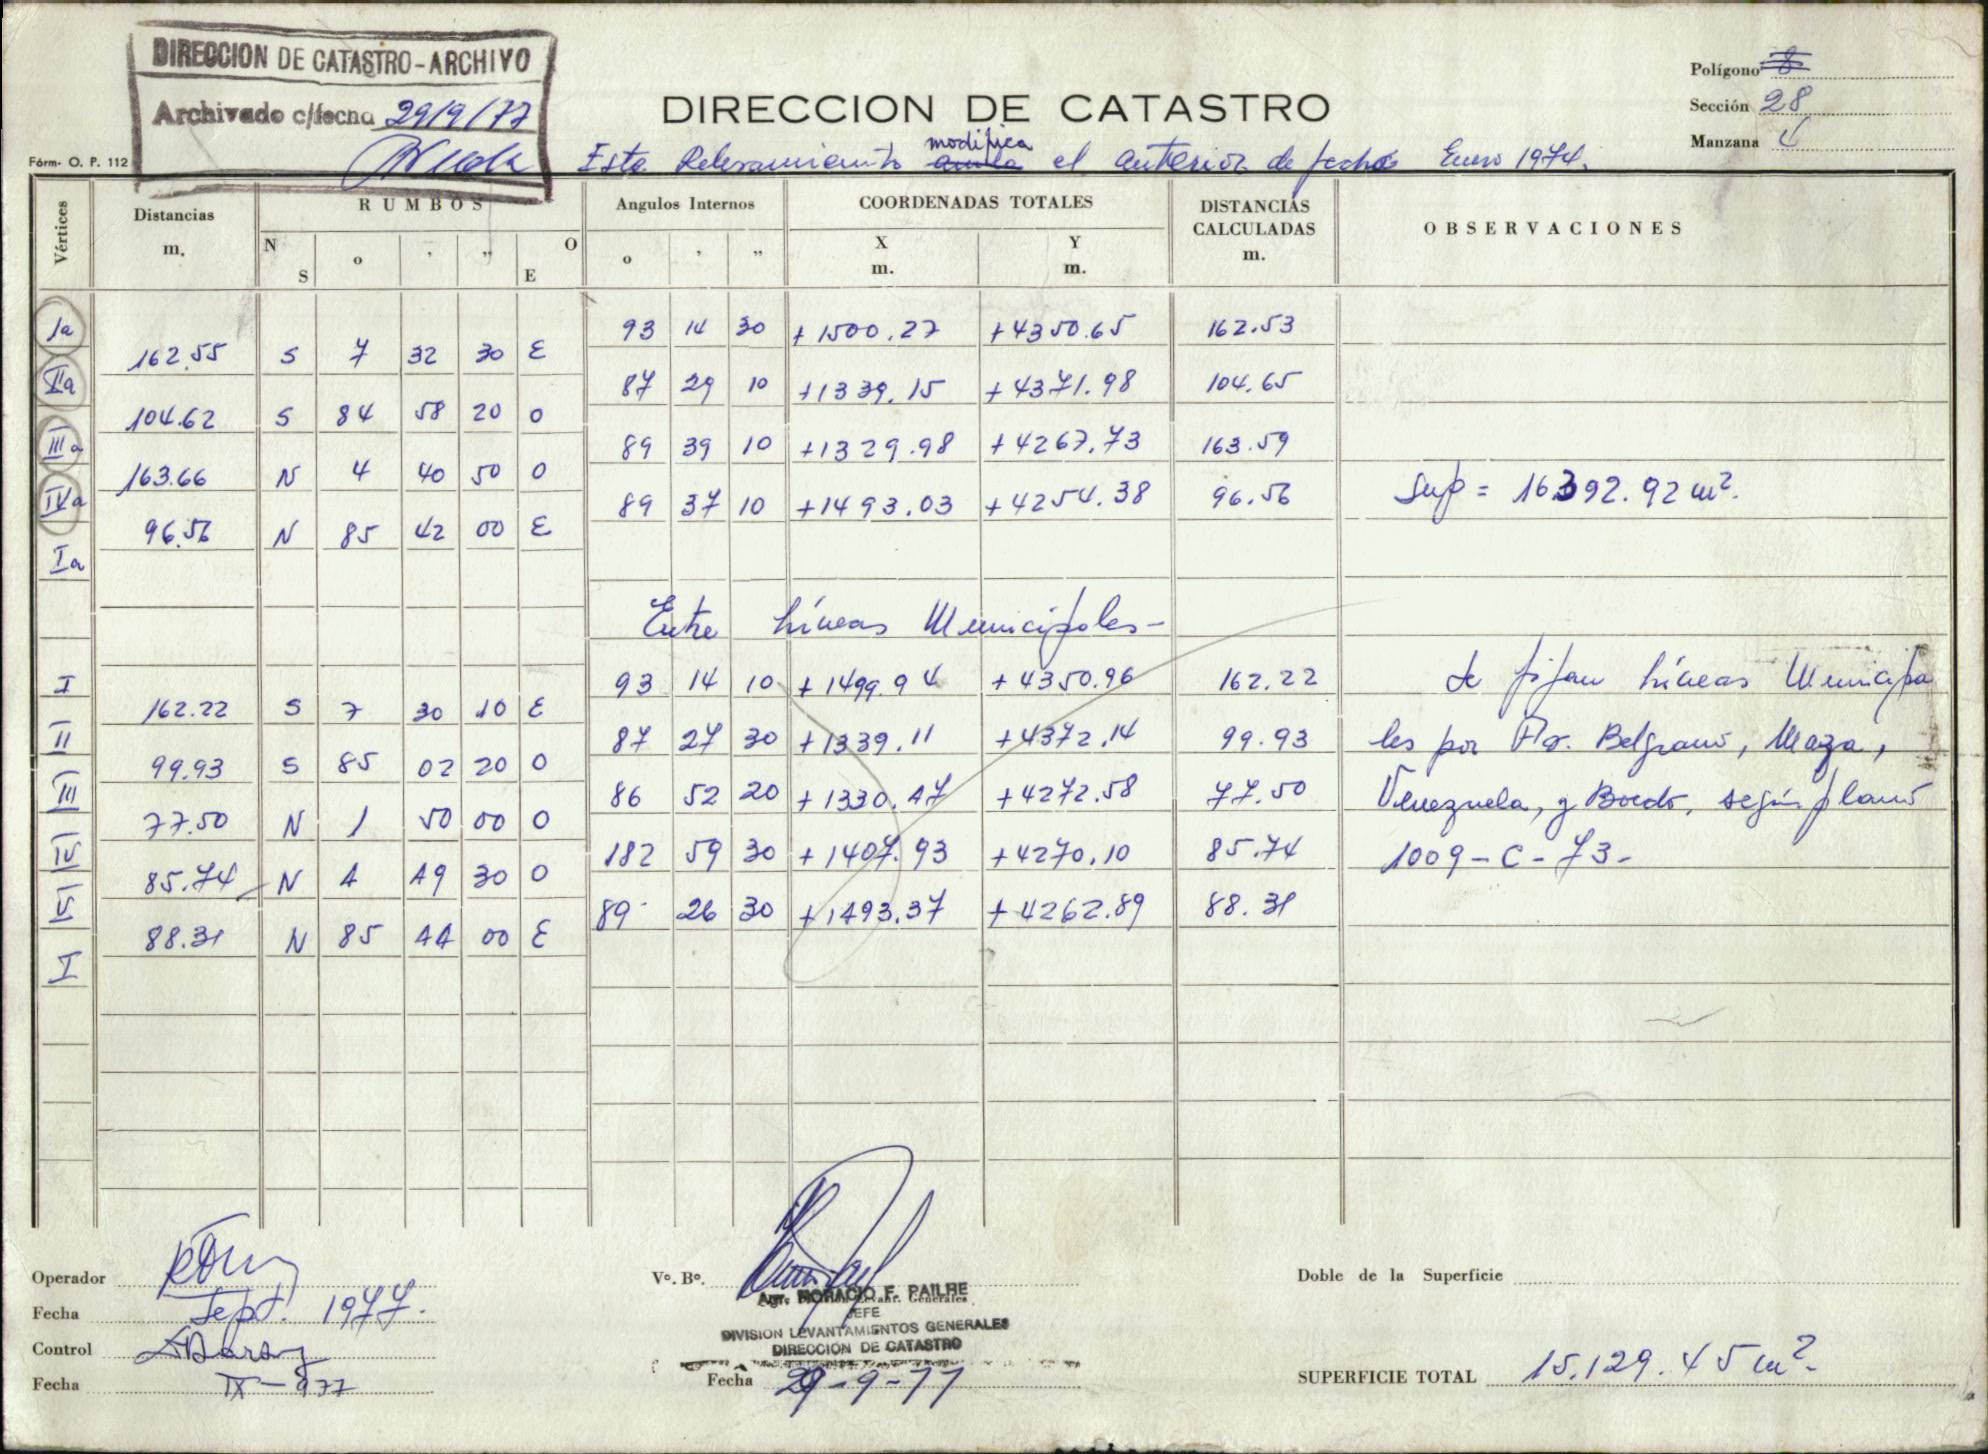 DIRECCION DE CATASTRO-ARCHIVO
Archivado c/fecha 29/9/77
Polígono 8
Sección 28
Manzana 4
DIRECCION DE CATASTRO
Fórm. O. P. 112
Este Relevamiento anula modifica el anterior de fecha Enero 1974.
Vértices Distancias m. RUMBOS N S ° ' " O E Angulos Internos ° ' " COORDENADAS TOTALES X m. Y m. DISTANCIAS CALCULADAS m. OBSERVACIONES
Ia 93 14 30 +1500.27 +4350.65 162.53
162.55 S 7 32 30 E
IIa 87 29 10 +1339.15 +4371.98 104.65
104.62 S 84 58 20 O
IIIa 89 39 10 +1329.98 +4267.73 163.59
163.66 N 4 40 50 O
IVa 89 37 10 +1493.03 +4254.38 96.56 Sup = 16392.92 m².
96.56 N 85 42 00 E
Ia
Entre Líneas Municipales-
I 93 14 10 +1499.94 +4350.96 162.22 Se fijan Líneas Municipa
162.22 S 7 30 10 E
II 87 27 30 +1339.11 +4372.14 99.93 les por Av. Belgrano, Maza,
99.93 S 85 02 20 O
III 86 52 20 +1330.47 +4272.58 77.50 Venezuela, y Boedo, según plano
77.50 N 1 50 00 O
IV 182 59 30 +1407.93 +4270.10 85.74 1009-C-73-
85.74 N 4 49 30 O
V 89 26 30 +1493.37 +4262.89 88.31
88.31 N 85 44 00 E
I
Operador
Fecha Sept. 1977.
Control
Fecha IX-977
Vº. Bº.
Agr. HORACIO F. PAILHE
JEFE
DIVISION LEVANTAMIENTOS GENERALES
DIRECCION DE CATASTRO
Fecha 29-9-77
Doble de la Superficie
SUPERFICIE TOTAL 15.129.45 m².